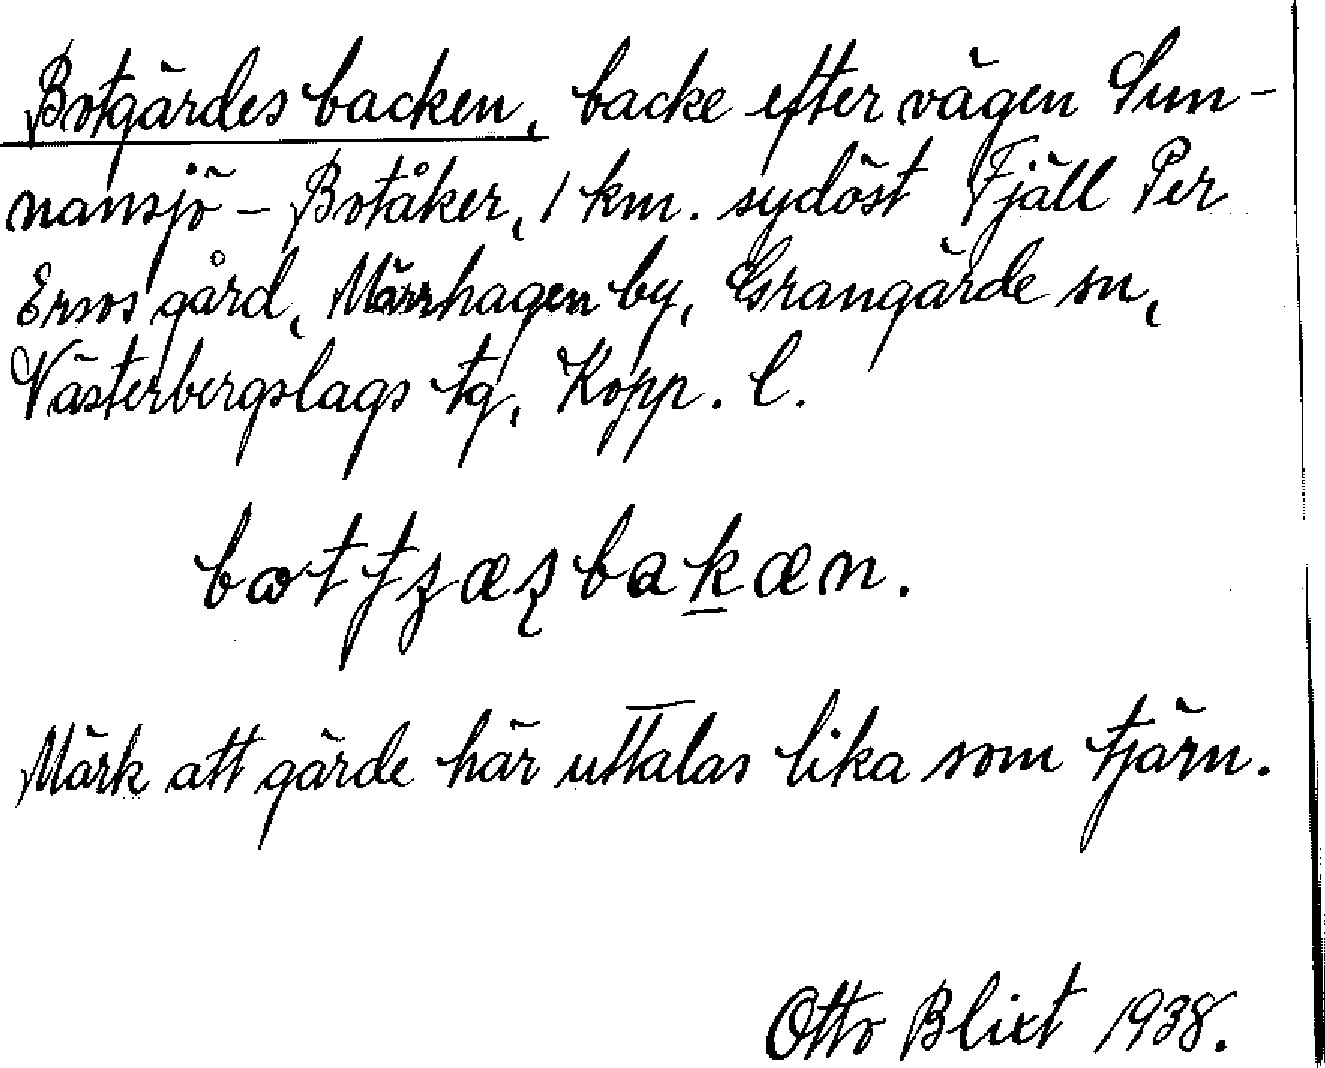 Botgärdesbacken, backe efter vägen Sun-
nansjö - Botåker, 1 km. sydöst Fjäll Per
Ersos gård, Märrhagen by, Grangärde sn,
Västerbergslags tg, Kopp. l.
bakæn.
Märk att gärde här uttalas lika som tjärn.
Otto Blixt 1938.